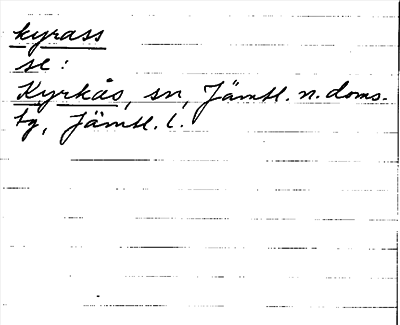 kyrass
se:
Kyrkås, sn, Jämtl. n. doms.
tg, Jämtl. l.